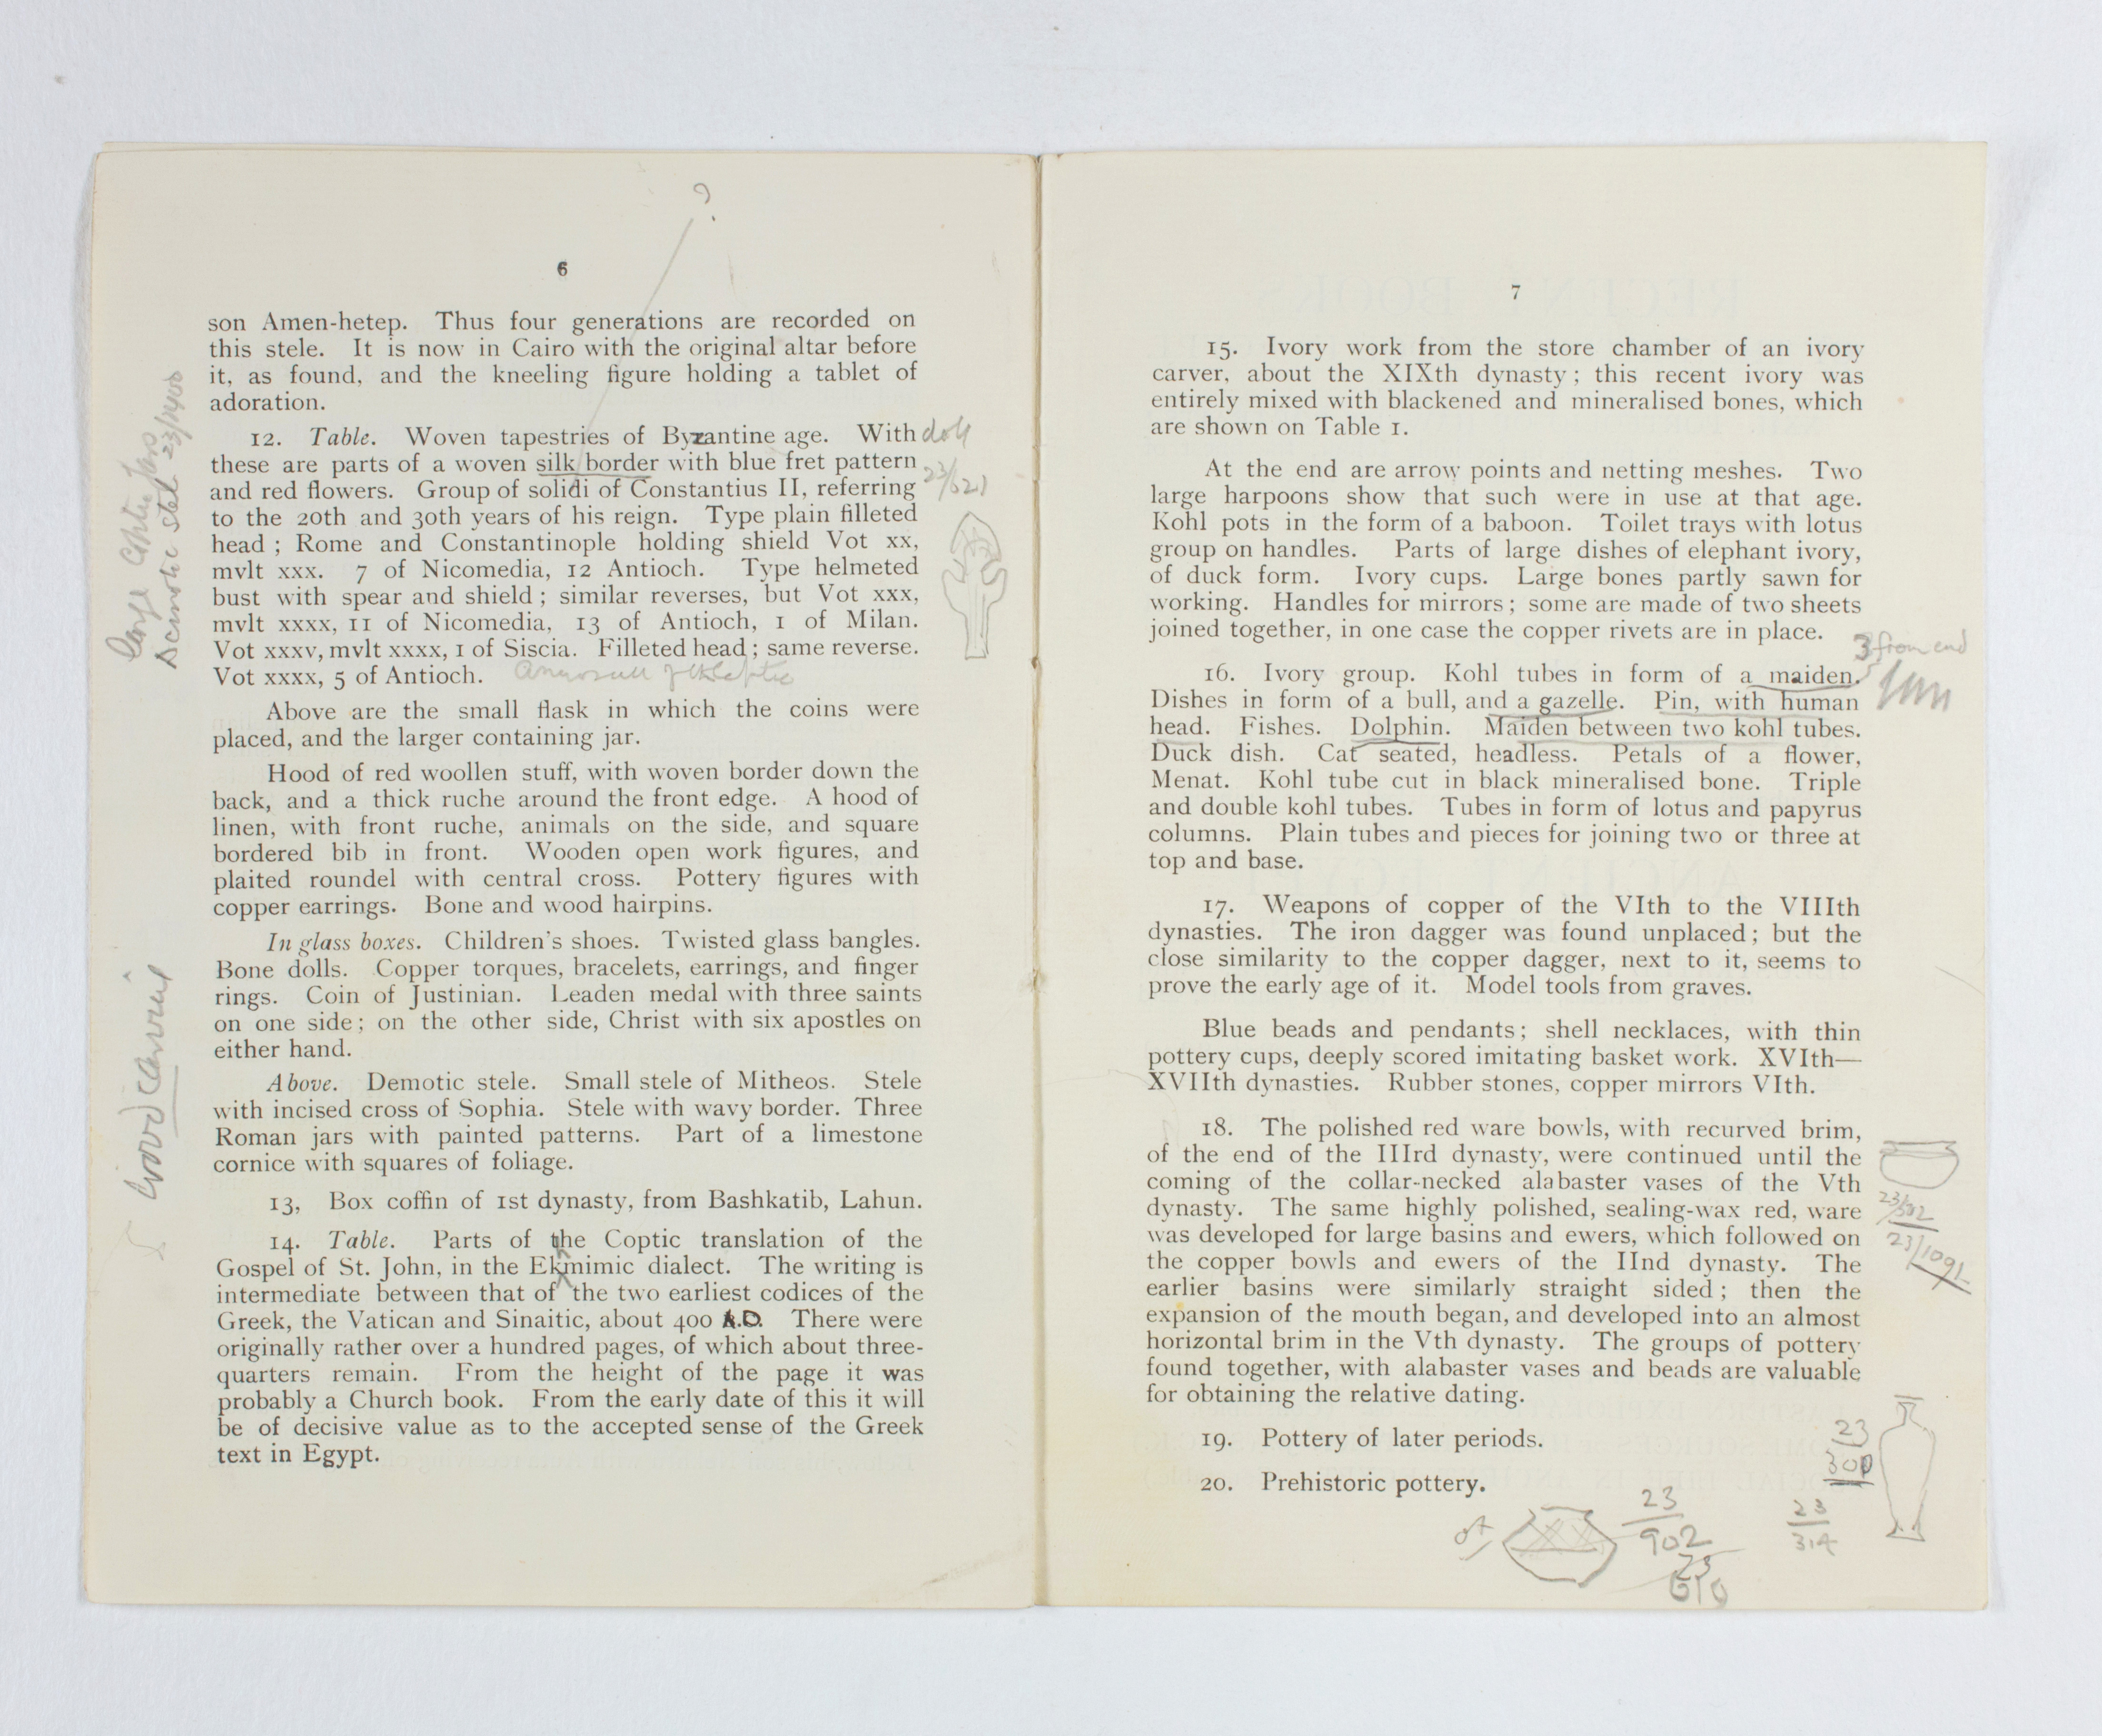 6
son Amen-hetep. Thus four generations are recorded on
this stele. It is now in Cairo with the original altar before
it, as found, and the kneeling figure holding a tablet of
adoration.
12. Table. Woven tapestries of Byzantine age. With
these are parts of a woven silk border with blue fret pattern
and red flowers. Group of solidi of Constantius II, referring
to the 20th and 30th years of his reign. Type plain filleted
head; Rome and Constantinople holding shield Vot xx,
mvlt xxx. 7 of Nicomedia, 12 Antioch. Type helmeted
bust with spear and shield; similar reverses, but Vot xxx,
mvlt xxxx, 11 of Nicomedia, 13 of Antioch, 1 of Milan.
Vot xxxv, mvlt xxxx, 1 of Siscia. Filleted head; same reverse.
Vot xxxx, 5 of Antioch.
Above are the small flask in which the coins were
placed, and the larger containing jar.
Hood of red woollen stuff, with woven border down the
back, and a thick ruche around the front edge. A hood of
linen, with front ruche, animals on the side, and square
bordered bib in front. Wooden open work figures, and
plaited roundel with central cross. Pottery figures with
copper earrings. Bone and wood hairpins.
In glass boxes. Children's shoes. Twisted glass bangles.
Bone dolls. Copper torques, bracelets, earrings, and finger
rings. Coin of Justinian. Leaden medal with three saints
on one side; on the other side, Christ with six apostles on
either hand.
Above. Demotic stele. Small stele of Mitheos. Stele
with incised cross of Sophia. Stele with wavy border. Three
Roman jars with painted patterns. Part of a limestone
cornice with squares of foliage.
13, Box coffin of 1st dynasty, from Bashkatib, Lahun.
14. Table. Parts of the Coptic translation of the
Gospel of St. John, in the Ekmimic dialect. The writing is
intermediate between that of the two earliest codices of the
Greek, the Vatican and Sinaitic, about 400 A.D. There were
originally rather over a hundred pages, of which about three-
quarters remain. From the height of the page it was
probably a Church book. From the early date of this it will
be of decisive value as to the accepted sense of the Greek
text in Egypt.
?
doll
Large Coptic Jars
Demotic stele 23/1400
Wood Carving
7
15. Ivory work from the store chamber of an ivory
carver, about the XIXth dynasty; this recent ivory was
entirely mixed with blackened and mineralised bones, which
are shown on Table 1.
At the end are arrow points and netting meshes. Two
large harpoons show that such were in use at that age.
Kohl pots in the form of a baboon. Toilet trays with lotus
group on handles. Parts of large dishes of elephant ivory,
of duck form. Ivory cups. Large bones partly sawn for
working. Handles for mirrors; some are made of two sheets
joined together, in one case the copper rivets are in place.
3 from end
16. Ivory group. Kohl tubes in form of a maiden.
Dishes in form of a bull, and a gazelle. Pin, with human
head. Fishes. Dolphin. Maiden between two kohl tubes.
Duck dish. Cat seated, headless. Petals of a flower,
Menat. Kohl tube cut in black mineralised bone. Triple
and double kohl tubes. Tubes in form of lotus and papyrus
columns. Plain tubes and pieces for joining two or three at
top and base.
17. Weapons of copper of the VIth to the VIIIth
dynasties. The iron dagger was found unplaced; but the
close similarity to the copper dagger, next to it, seems to
prove the early age of it. Model tools from graves.
Blue beads and pendants; shell necklaces, with thin
pottery cups, deeply scored imitating basket work. XVIth—
XVIIth dynasties. Rubber stones, copper mirrors VIth.
18. The polished red ware bowls, with recurved brim,
of the end of the IIIrd dynasty, were continued until the
coming of the collar-necked alabaster vases of the Vth
dynasty. The same highly polished, sealing-wax red, ware
was developed for large basins and ewers, which followed on
the copper bowls and ewers of the IInd dynasty. The
earlier basins were similarly straight sided; then the
expansion of the mouth began, and developed into an almost
horizontal brim in the Vth dynasty. The groups of pottery
found together, with alabaster vases and beads are valuable
for obtaining the relative dating.
23/502
23/1091
19. Pottery of later periods.
20. Prehistoric pottery.
23
300
23
902
23
610
23
314